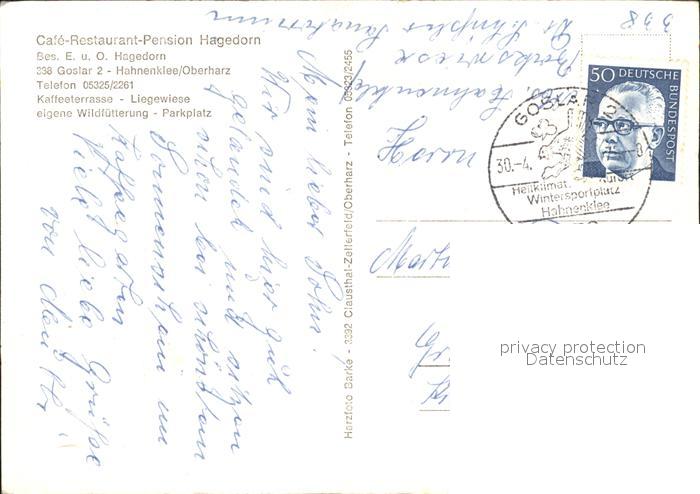 Café-Restaurant-Pension Hagedorn
Bes. E. u. O. Hagedorn
338 Goslar 2 - Hahnenklee/Oberharz
Telefon 05325/2261
Kaffeeterrasse - Liegewiese
eigene Wildfütterung - Parkplatz
Mein lieber Sohn!
Wir sind hier gut
gelandet und sitzen
schon bei schönstem
Sonnenschein im
Kaffeegarten
Viele liebe Grüße
von
Herzfoto Barke - 3392 Clausthal-Zellerfeld/Oberharz - Telefon 05323/2455
338
Hahnenklee
50 DEUTSCHE
BUNDESPOST
GOSLAR 2
30.-4.
Heilklimat. Kurort
Wintersportplatz
Hahnenklee
Herrn
privacy protection
Datenschutz